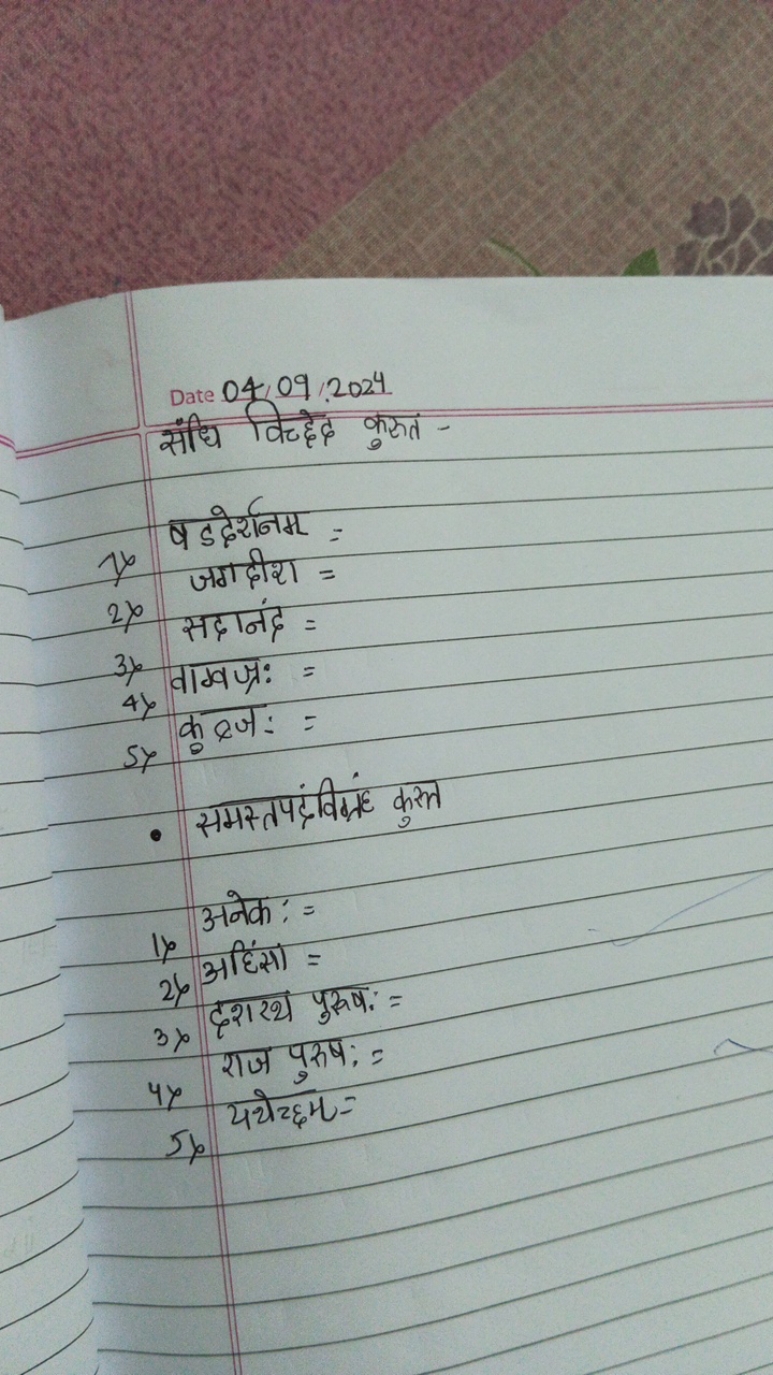 Date 04/09/2024
संधि विच्छेद कुरुत -
1) षडदर्शनम =
2) जगदीश =
3) सदानंद =
4) =
5) =
• समस्तपदंविग्रंह कुरुत
1) अनेक: =
2) अहिंसा =
3) दशरथ पुरुष: =
4) राज पुरुष: =
5) यथेच्छम =